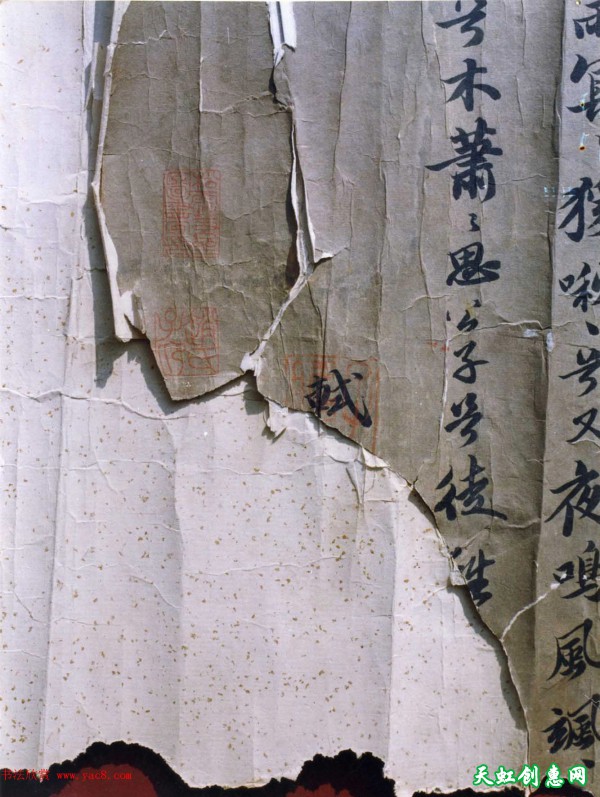 雨冥〻猨啾〻兮又夜鳴風颯〻
兮木蕭〻思公子兮徒離
軾
书法欣赏 www.yac8.com
天虹创惠网